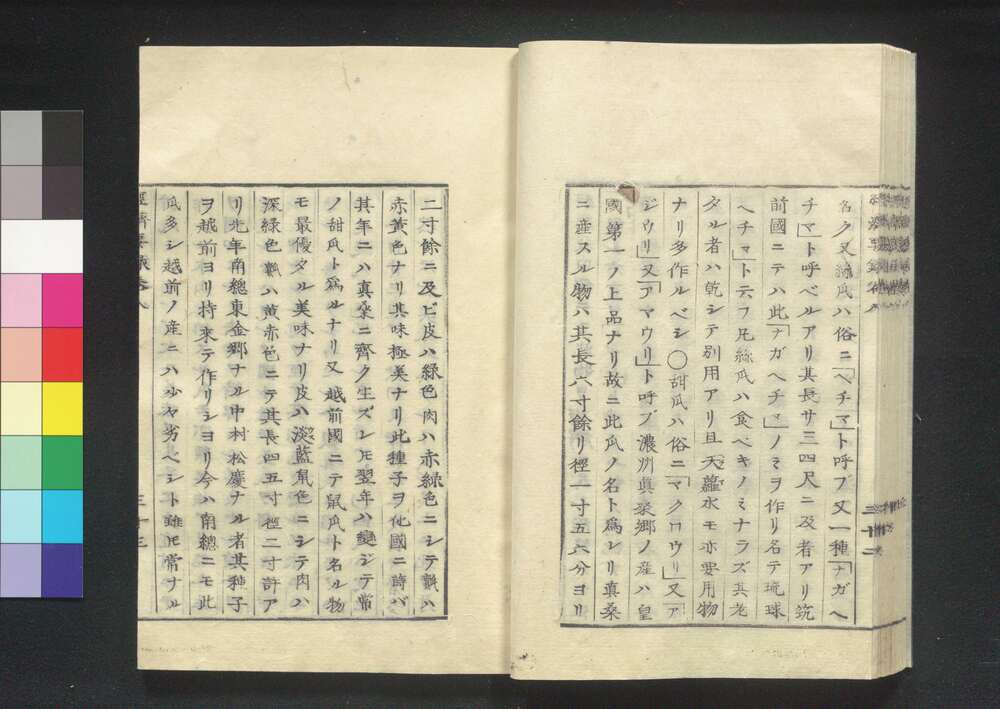 名ク又絲瓜ハ俗ニ「ヘチマ」ト呼ブ又一種「ナガヘ
チマ」ト呼ベルアリ其長サ三四尺ニ及者アリ筑
前國ニテハ此「ナガヘチマ」ノミヲ作リ名テ琉球
ヘチマ」ト云フ凡絲瓜ハ食ベキノミナラズ其老
タル者ハ乾シテ別用アリ且天蘿水モ亦要用物
ナリ多作ルベシ〇甜瓜ハ俗ニ「マクワウリ」又「ア
ジウリ」又「アマウリ」ト呼ブ濃洲眞桑郷ノ産ハ皇
國第一ノ上品ナリ故ニ此瓜ノ名ト爲レリ眞桑
ニ産スル物ハ其長八寸餘リ徑一寸五六分ヨリ
三十二
二寸餘ニ及ビ皮ハ緑色肉ハ赤緑色ニシテ瓤ハ
赤黄色ナリ其味極美ナリ此種子ヲ他國ニ蒔バ
其年ニハ真桑ニ齊ク生ズレ𪜈翌年ハ變ジテ常
ノ甜瓜ト爲ルナリ又越前國ニテ鼠瓜ト名ル物
モ最優タル美味ナリ皮ハ淡藍鼠色ニシテ肉ハ
深緑色瓤ハ黄赤色ニテ其長四五寸徑二寸許ア
リ先年南總東金郷ナル中村松慶ナル者其種子
ヲ越前ヨリ持來テ作リシヨリ今ハ南總ニモ此
瓜多シ越前ノ産ニハ少ヤ劣ベシト雖𪜈常ナル
三十三